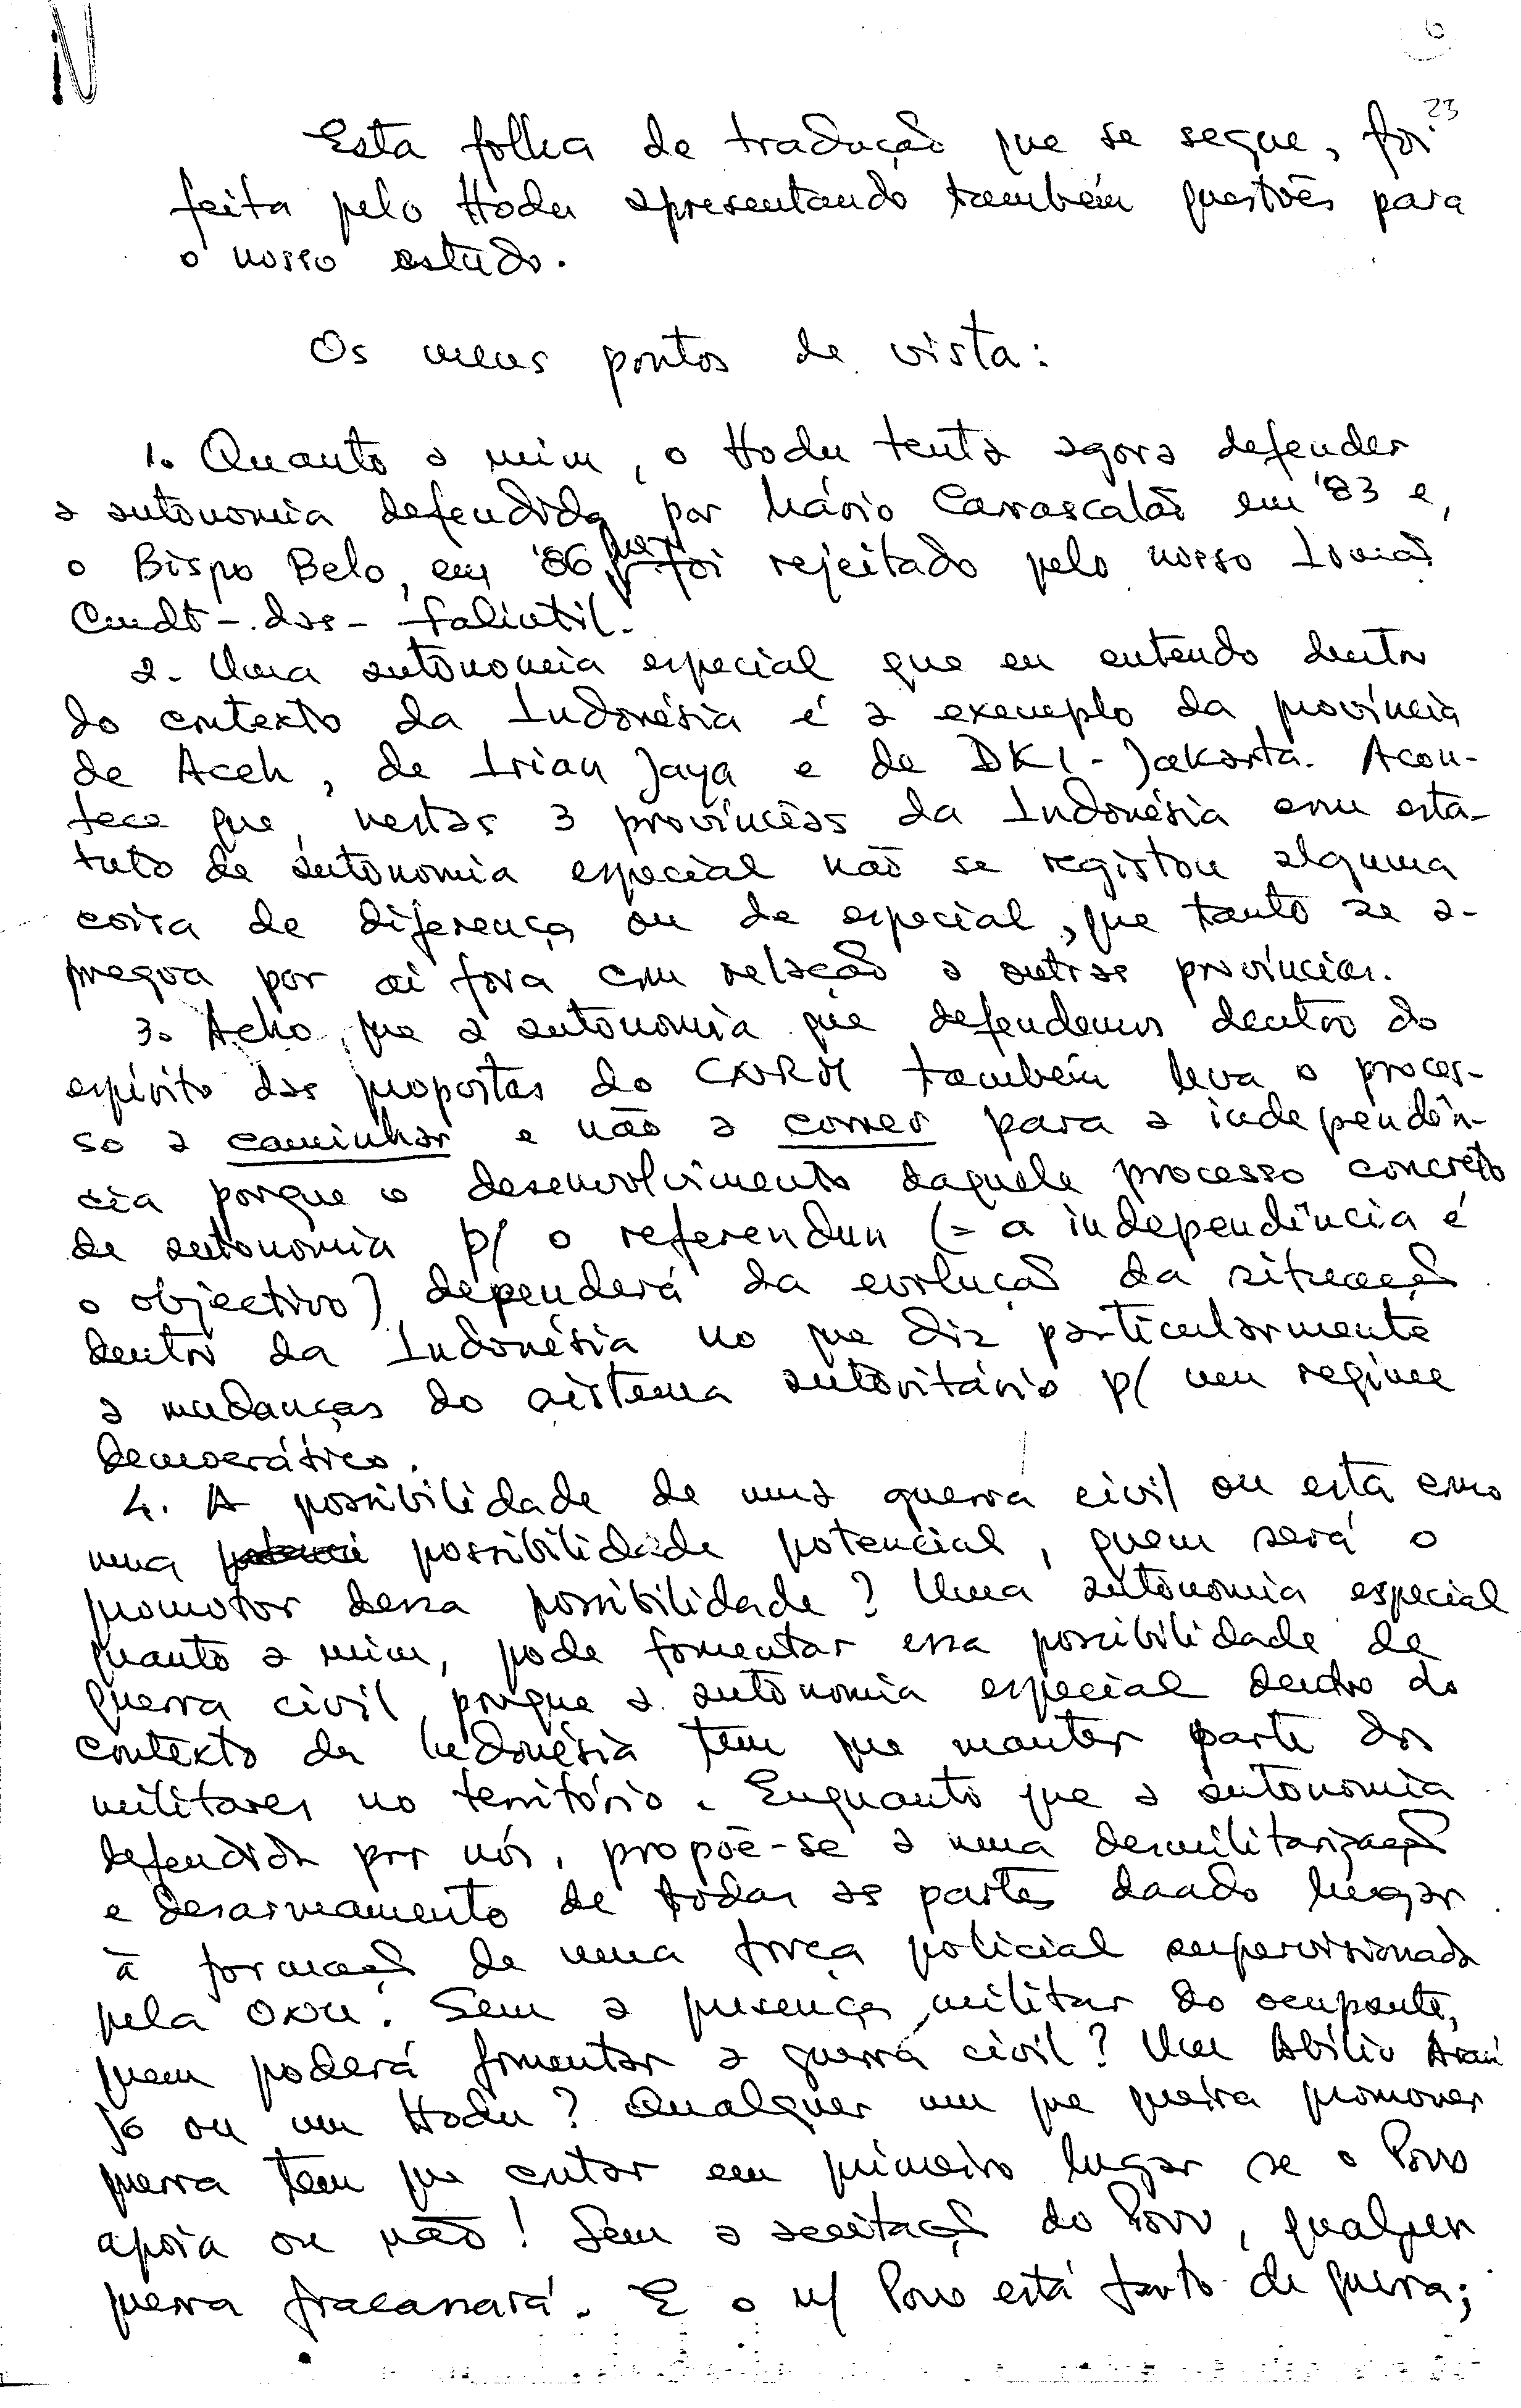 N
6
23
Esta folha de tradução que se segue, foi
feita pelo Hodu apresentando também questões para
o nosso estudo.
Os meus pontos de vista:
1. Quanto a mim, o Hodu tenta agora defender
a autonomia defendida por Mário Carrascalão em '83 e,
o Bispo Belo, em '86, que foi rejeitado pelo nosso Irmão
Cmdt-das-Falintil.
2. Uma autonomia especial que eu entendo dentro
do contexto da Indonésia é a exemplo da província
de Aceh, de Irian Jaya e de DKI-Jakarta. Acon-
tece que, nestas 3 províncias da Indonésia com esta-
tuto de autonomia especial não se registou alguma
coisa de diferença ou de especial, que tanto se a-
pregoa por aí fora em relação a outras províncias.
3. Acho que a autonomia que defendemos dentro do
espírito das propostas do CNRM também leva o proces-
so a caminhar e não a correr para a independên-
cia porque o desenvolvimento daquele processo concreto
de autonomia p/ o referendun (= a independência é
o objectivo) dependerá da evolução da situação
dentro da Indonésia no que diz particularmente
a mudanças do sistema autoritário p/ um regime
democrático.
4. A possibilidade de uma guerra civil ou está como
uma possibilidade potencial, quem será o
promotor dessa possibilidade? Uma autonomia especial
quanto a mim, pode fomentar essa possibilidade de
guerra civil, porque a autonomia especial dentro do
contexto da Indonésia tem que manter parte dos
militares no território. Enquanto que a autonomia
defendida por nós, propõe-se a uma desmilitarização
e desarmamento de todas as partes dando lugar
à formação de uma força policial supervisionada
pela ONU. Sem a presença militar do ocupante,
quem poderá fomentar a guerra civil? Um Abílio Araú
jo ou um Hodu? Qualquer um que queira promover
guerra tem que contar em primeiro lugar se o Povo
apoia ou não! Sem a aceitação do Povo, qualquer
guerra fracassará. E o n/ Povo está farto de guerra;